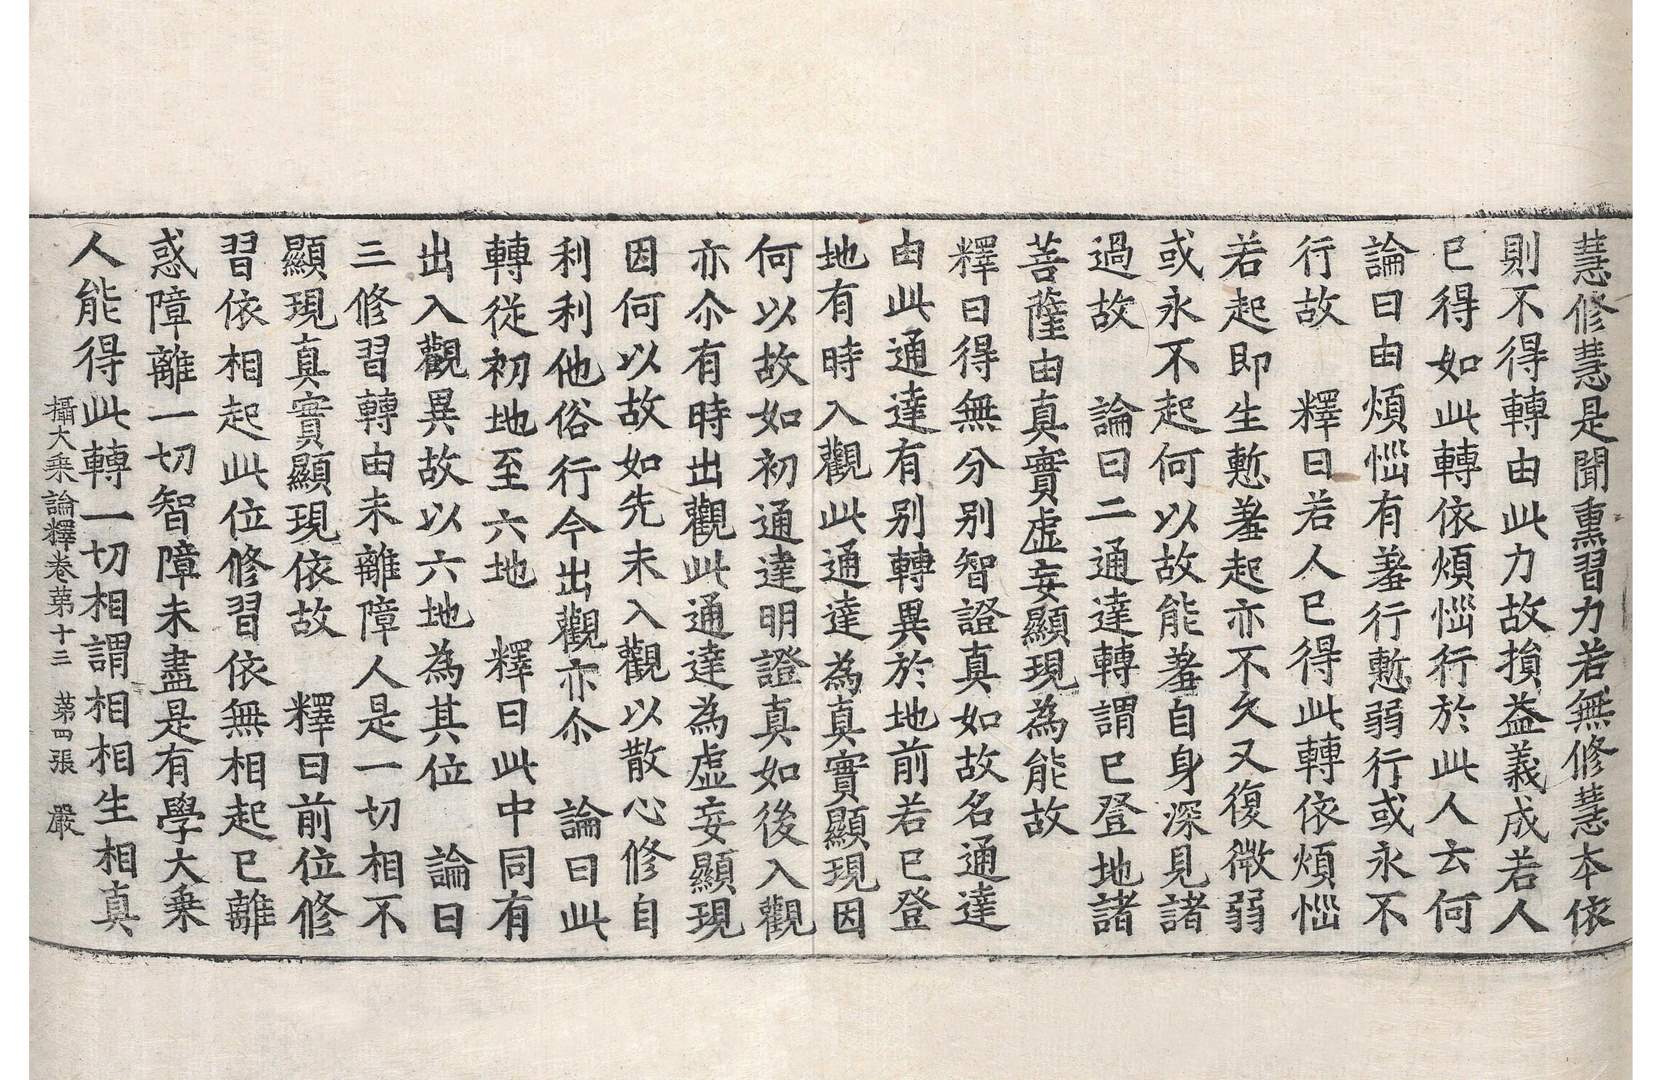 慧修慧是聞熏習力若無修慧本依
則不得轉由此力故損益義成若人
已得如此轉依煩惱行於此人云何
論曰由煩惱有羞行慙弱行或永不
行故　釋曰若人已得此轉依煩惱
若起即生慙羞起亦不久又復微弱
或永不起何以故能羞自身深見諸
過故　論曰二通達轉謂已登地諸
菩薩由真實虛妄顯現為能故
釋曰得無分別智證真如故名通達
由此通達有別轉異於地前若已登
地有時入觀此通達為真實顯現因
何以故如初通達明證真如後入觀
亦尒有時出觀此通達為虛妄顯現
因何以故如先未入觀以散心修自
利利他俗行今出觀亦尒　論曰此
轉從初地至六地　釋曰此中同有
出入觀異故以六地為其位　論曰
三修習轉由未離障人是一切相不
顯現真實顯現依故　釋曰前位修
習依相起此位修習依無相起已離
惑障離一切智障未盡是有學大乗
人能得此轉一切相謂相相生相真
攝大乗論釋卷苐十三　苐四張　嚴